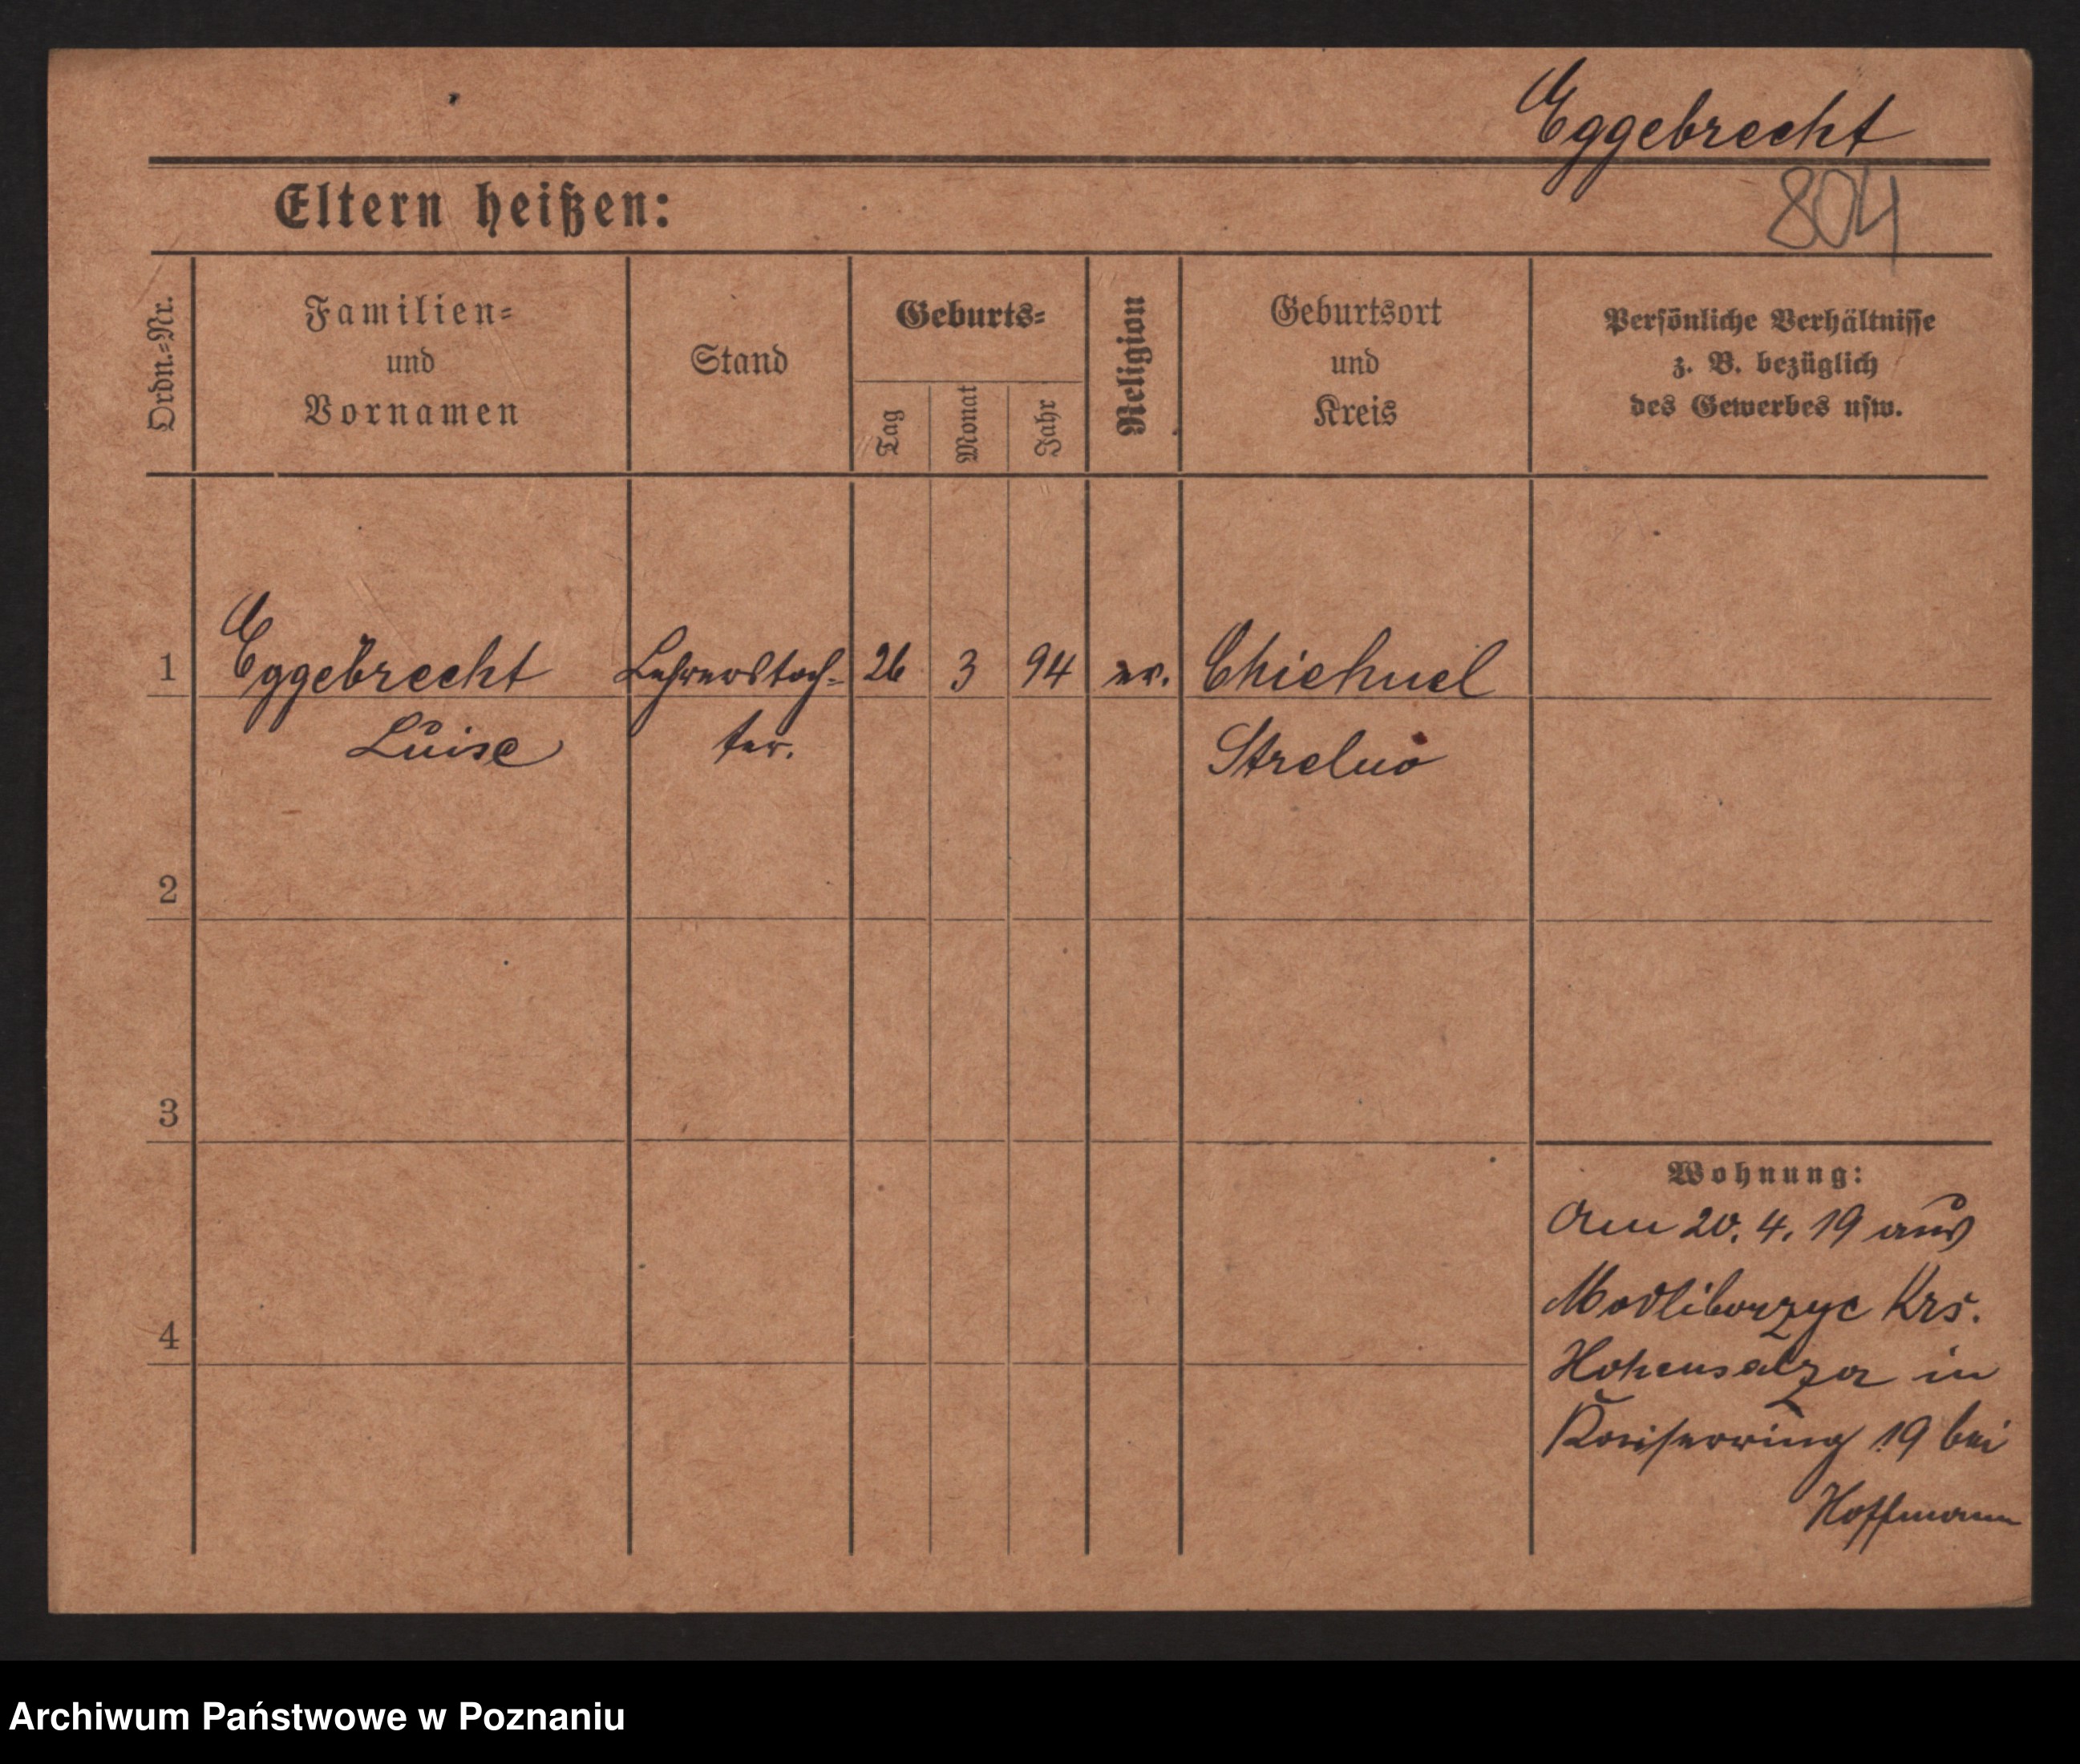 Eggebrecht
804
Eltern heißen:
Ordn.-Nr.
Familien-
und
Vornamen
Stand
Geburts-
Tag
Monat
Jahr
Religion
Geburtsort
und
Kreis
Persönliche Verhältnisse
z. B. bezüglich
des Gewerbes usw.
1
Eggebrecht
Luise
Lehrerstoch-
ter.
26
3
94
ev.
Strelno
2
3
4
Wohnung:
Am 20. 4. 19 aus
Modliborzyc Krs.
Hohensalza in
Kaiserring 19 bei
Hoffmann
Archiwum Państwowe w Poznaniu